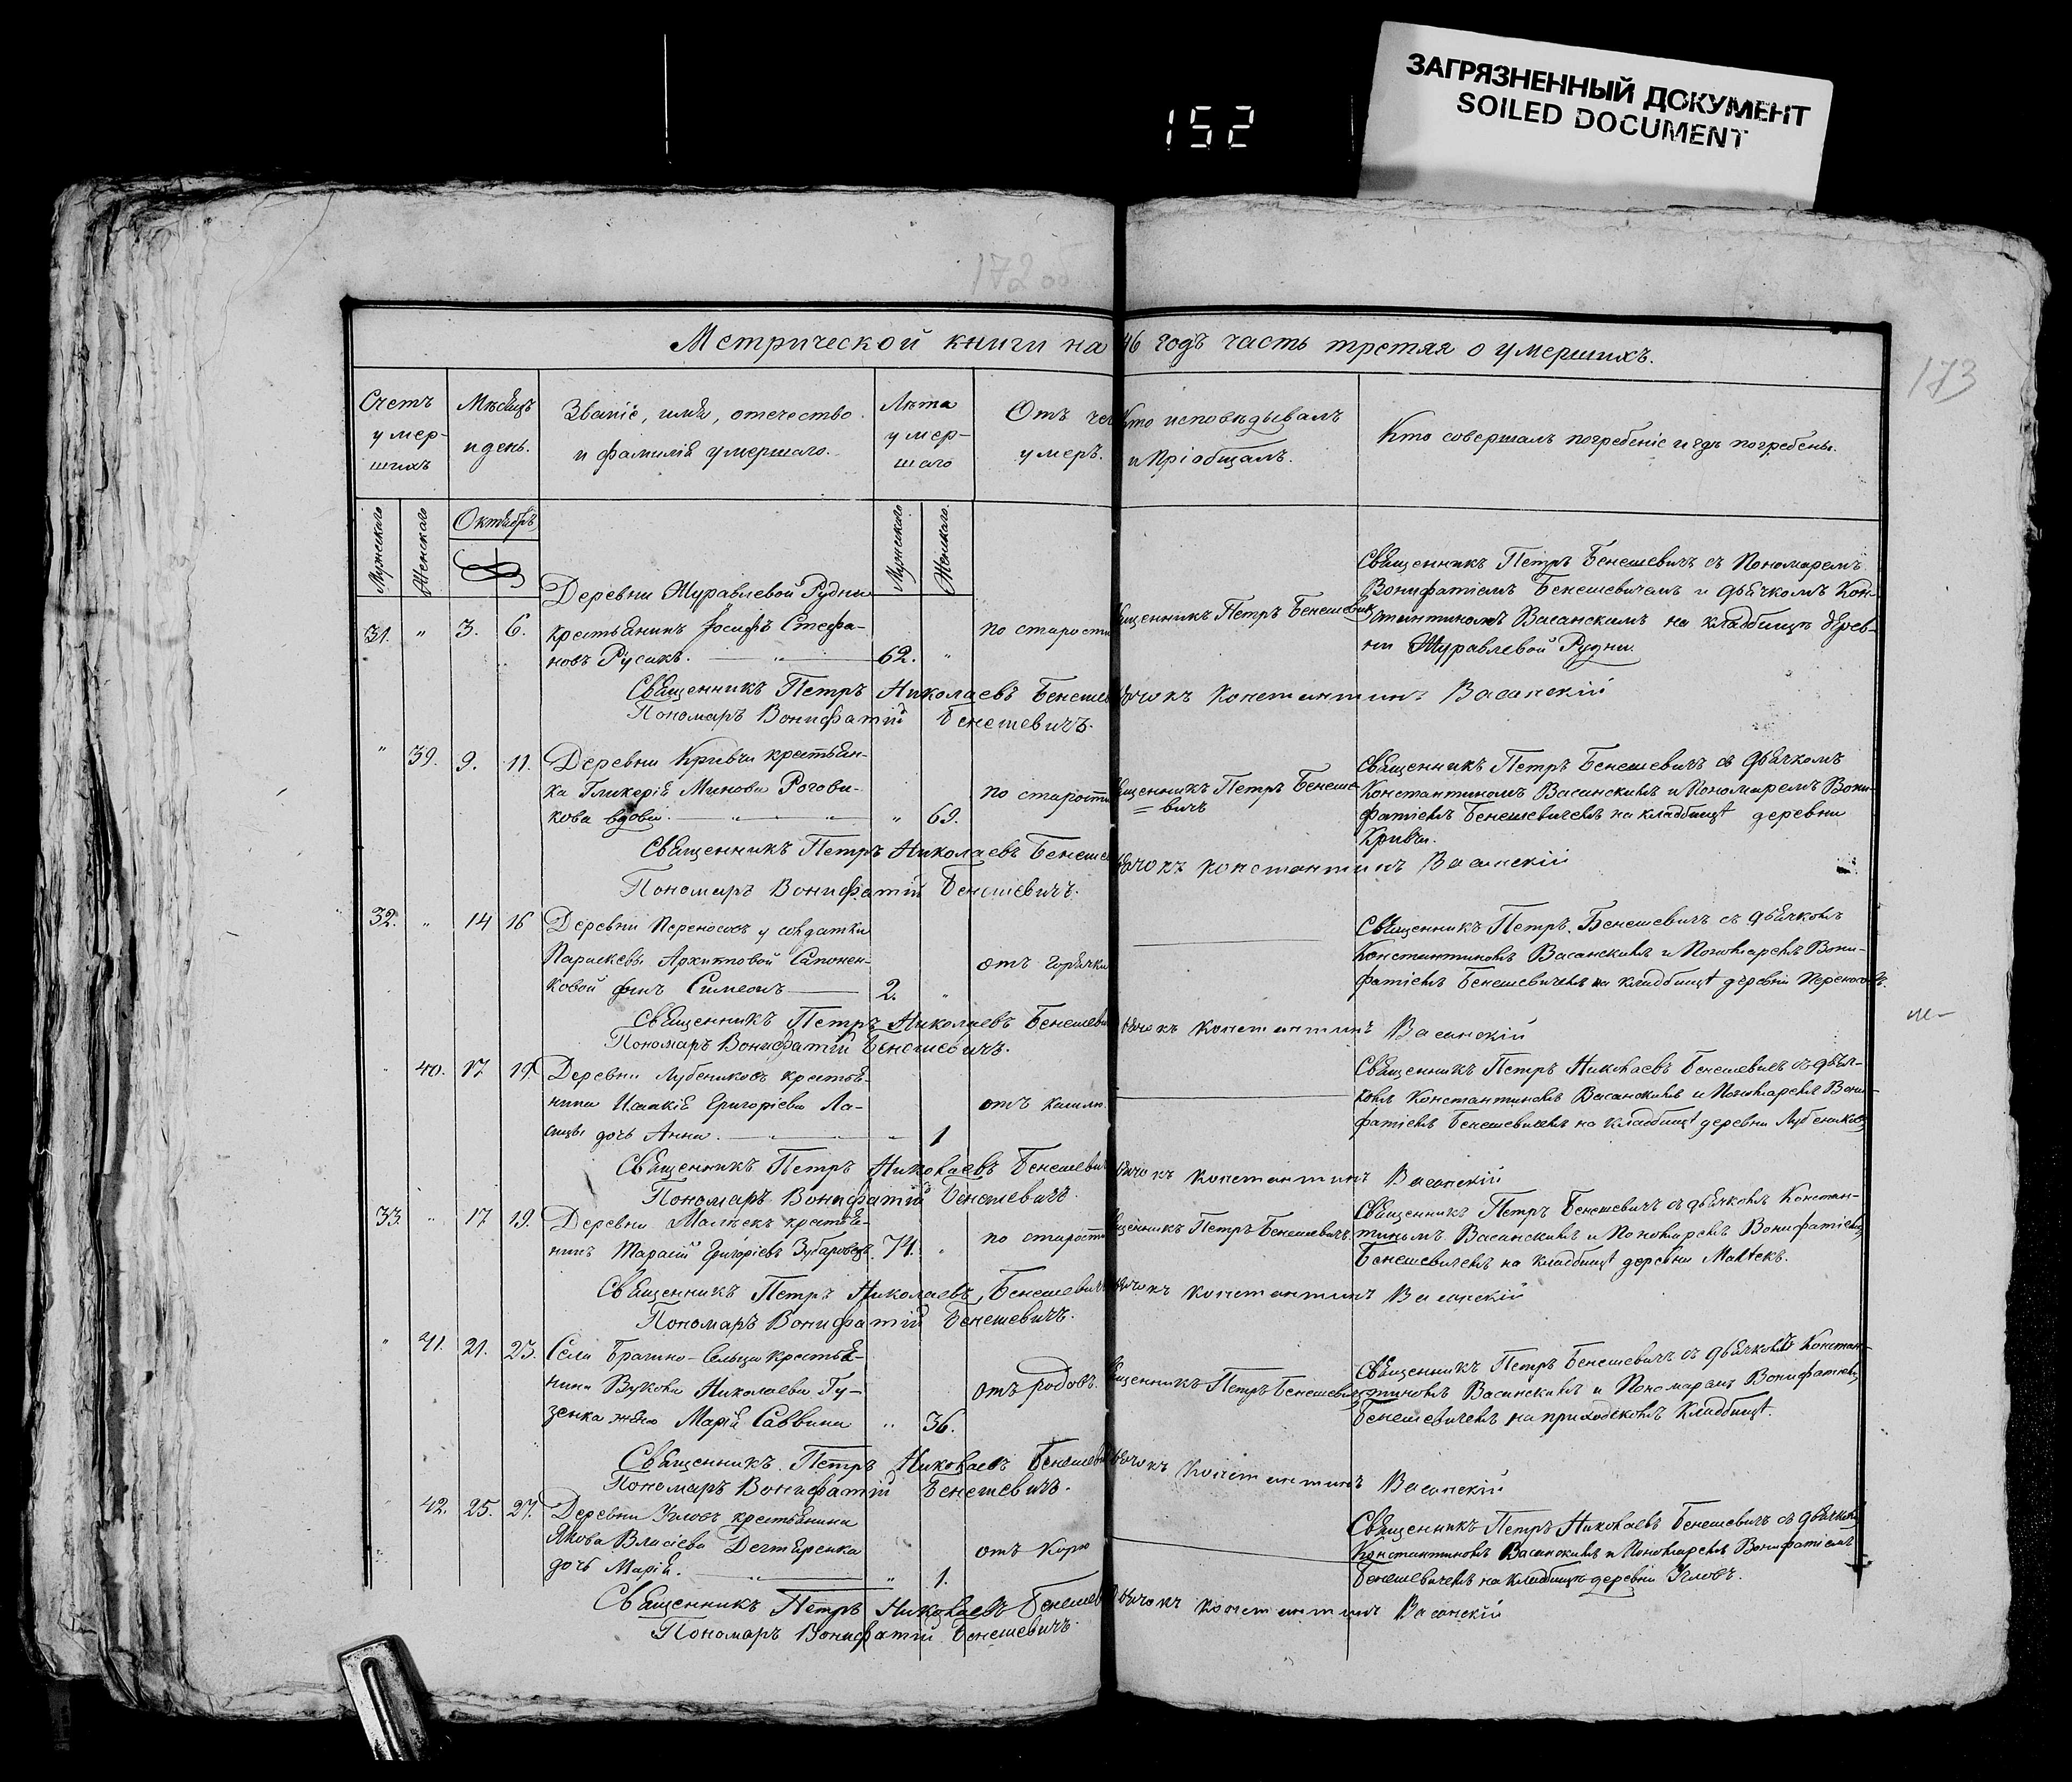 ЗАГРЯЗНЕННЫЙ ДОКУМЕНТ
SOILED DOCUMENT
152
172 об
173
Метрической книги на 46 годъ часть третяя о умершихъ.
Счетъ умер-шихъ
Мѣсяцъ и день.
Званіе, имя, отечество и фамилія умершаго.
Лѣта умер-шаго
Отъ чего умеръ.
Кто исповѣдывалъ и пріобщалъ.
Кто совершалъ погребеніе и гдѣ погребены.
Мужескаго
Женскаго
Октябрь
Мужескаго
Женскаго
31. " 3. 6.
Деревни Журавлевой Рудни
крестьянинъ Іосифъ Стефа-
новъ Русакъ. 62. "
по старости
Священникъ Петръ Бенешевичъ
Священникъ Петръ Бенешевичъ съ Пономаремъ
Вонифатіемъ Бенешевичемъ и дьячкомъ Кон-
стантиномъ Васанскимъ на кладбищѣ дерев-
ни Журавлевой Рудни.
Священникъ Петръ Николаевъ Бенешевичъ
дьячокъ Константинъ Васанскій
Пономарь Вонифатій Бенешевичъ.
" 39. 9. 11.
Деревни Кривчи крестьян-
ка Гликерія Минова Рогови-
кова вдова. " 69.
по старости
Священникъ Петръ Бенеше-
=вичъ
Священникъ Петръ Бенешевичъ съ дьячкомъ
Константиномъ Васанскимъ и Пономаремъ Вони-
фатіемъ Бенешевичемъ на кладбищѣ деревни
Кривчи.
Священникъ Петръ Николаевъ Бенешевичъ
дьячокъ Константинъ Васанскій
Пономарь Вонифатій Бенешевичъ.
32. " 14 16
Деревни Переносовъ у солдатки
Параскевы Архиповой Сапонен-
ковой сынъ Симеонъ 2. "
отъ горячки
Священникъ Петръ Бенешевичъ съ дьячкомъ
Константиномъ Васанскимъ и Пономаремъ Вони-
фатіемъ Бенешевичемъ на кладбищѣ деревни Переносовъ.
Священникъ Петръ Николаевъ Бенешевичъ
дьячокъ Константинъ Васанскій
Пономарь Вонифатій Бенешевичъ.
" 40. 17 19.
Деревни Лубениковъ крестья-
нина Исаакія Григоріева
дочь Анна. " 1
отъ кашлю
Священникъ Петръ Николаевъ Бенешевичъ съ дьяч-
комъ Константиномъ Васанскимъ и Пономаремъ Вони-
фатіемъ Бенешевичемъ на кладбищѣ деревни Лубениковъ
Священникъ Петръ Николаевъ Бенешевичъ
дьячокъ Константинъ Васанскій
Пономарь Вонифатій Бенешевичъ.
33. " 17 19.
Деревни Малѣекъ крестья-
нинъ Тарасій Григоріевъ Зубаровецъ 74. "
по старости
Священникъ Петръ Бенешевичъ
Священникъ Петръ Бенешевичъ съ дьячкомъ Констан-
тиномъ Васанскимъ и Пономаремъ Вонифатіемъ
Бенешевичемъ на кладбищѣ деревни Малѣекъ.
Священникъ Петръ Николаевъ Бенешевичъ
дьячокъ Константинъ Васанскій
Пономарь Вонифатій Бенешевичъ.
" 41. 21. 23.
Села Брагино-Сельца крестья-
нина Вукова Николаева Гу-
зенка жена Марія Саввина " 36.
отъ родовъ.
Священникъ Петръ Бенешевичъ
Священникъ Петръ Бенешевичъ съ дьячкомъ Констан-
тиномъ Васанскимъ и Пономаремъ Вонифатіемъ
Бенешевичемъ на приходскомъ кладбищѣ.
Священникъ Петръ Николаевъ Бенешевичъ
дьячокъ Константинъ Васанскій
Пономарь Вонифатій Бенешевичъ.
" 42. 25. 27.
Деревни Угловъ крестьянина
Якова Власіева Дегтяренка
дочь Марія. " 1.
отъ корю
Священникъ Петръ Николаевъ Бенешевичъ съ дьячкомъ
Константиномъ Васанскимъ и Пономаремъ Вонифатіемъ
Бенешевичемъ на кладбищѣ деревни Угловъ.
Священникъ Петръ Николаевъ Бенешевичъ
дьячокъ Константинъ Васанскій
Пономарь Вонифатій Бенешевичъ.